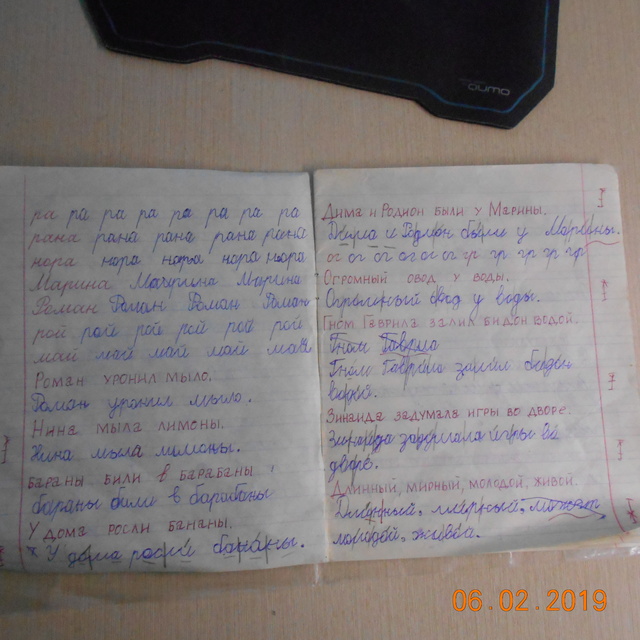 qumo
ра ра ра ра ра ра ра ра
рана рана рана рана рана
нора нора нора нора нора
Марина Марина Марина
Роман Роман Роман Роман
рой рой рой рой рой рой
май май май май май май
Роман уронил мыло.
Роман уронил мыло.
Нина мыла лимоны.
Нина мыла лимоны.
Бараны били в барабаны
бараны били в барабаны
У дома росли бананы.
У дома росли бананы.
Дима и Родион были у Марины.
Дима и Родион были у Марины.
ог ог ог ог ог ог гр гр гр гр гр
Огромный овод у воды.
Огромный овод у воды.
Гном Гаврила залил бидон водой.
Гном Гаврила
Гном Гаврила залил бидон
водой.
Зинаида задумала игры во дворе.
Зинаида задумала игры во
дворе.
Длинный, мирный, молодой, живой.
Длинный, мирный,
молодой, живой.
06.02.2019